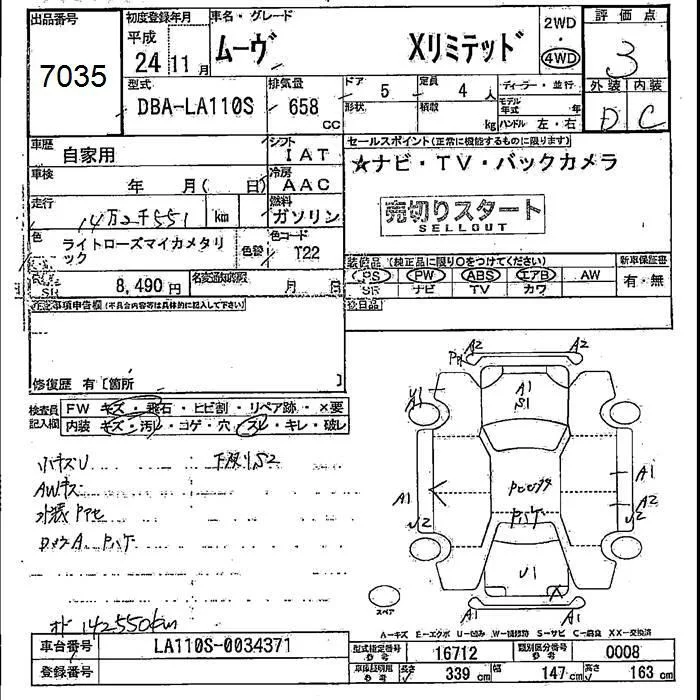 出品番号 初度登録年月 車名・グレード 評価点
7035
平成 24 11月
ムーヴ Xリミテッド
2WD ・ 4WD
3
型式 排気量 ドア 5 定員 4人 ディーラー・並行 外装 内装
DBA-LA110S 658 CC 形状 積載 kg モデル年式 年 D C
ハンドル 左・右
車歴 自家用 シフト IAT
セールスポイント(正常に機能するものに限ります)
★ナビ・TV・バックカメラ
車検 年 月( 日) 冷房 AAC
走行 14万2千551 km 燃料 ガソリン
売切りスタート
SELLOUT
色 ライトローズマイカメタリック 色替 色コード T22
装備品(純正品に限り○をつけてください) 新車保証書
PS PW ABS エアB AW 有・無
SR ナビ TV カワ
8,490円 名変通知期限 月 日
(不具合内容等は具体的に記入して下さい)
修復歴 有〔箇所 〕
検査員記入欄 FW キズ・飛石・ヒビ割・リペア跡・×要
内装 キズ・汚レ・コゲ・穴・スレ・キレ・破レ
小キズU
AWキズ
A2 A2
A1
S1
A1
A1
A2
U2
U1
A1 A1
スペア
142550km
A-キズ E-エクボ U-凹み W-補修跡 S-サビ C-腐食 XX-交換済
車台番号 LA110S-0034371
型式指定番号 参考 16712 類別区分番号 参考 0008
登録番号
車体証明書 参考 長さ 339 cm 幅 147 cm 高さ 163 cm